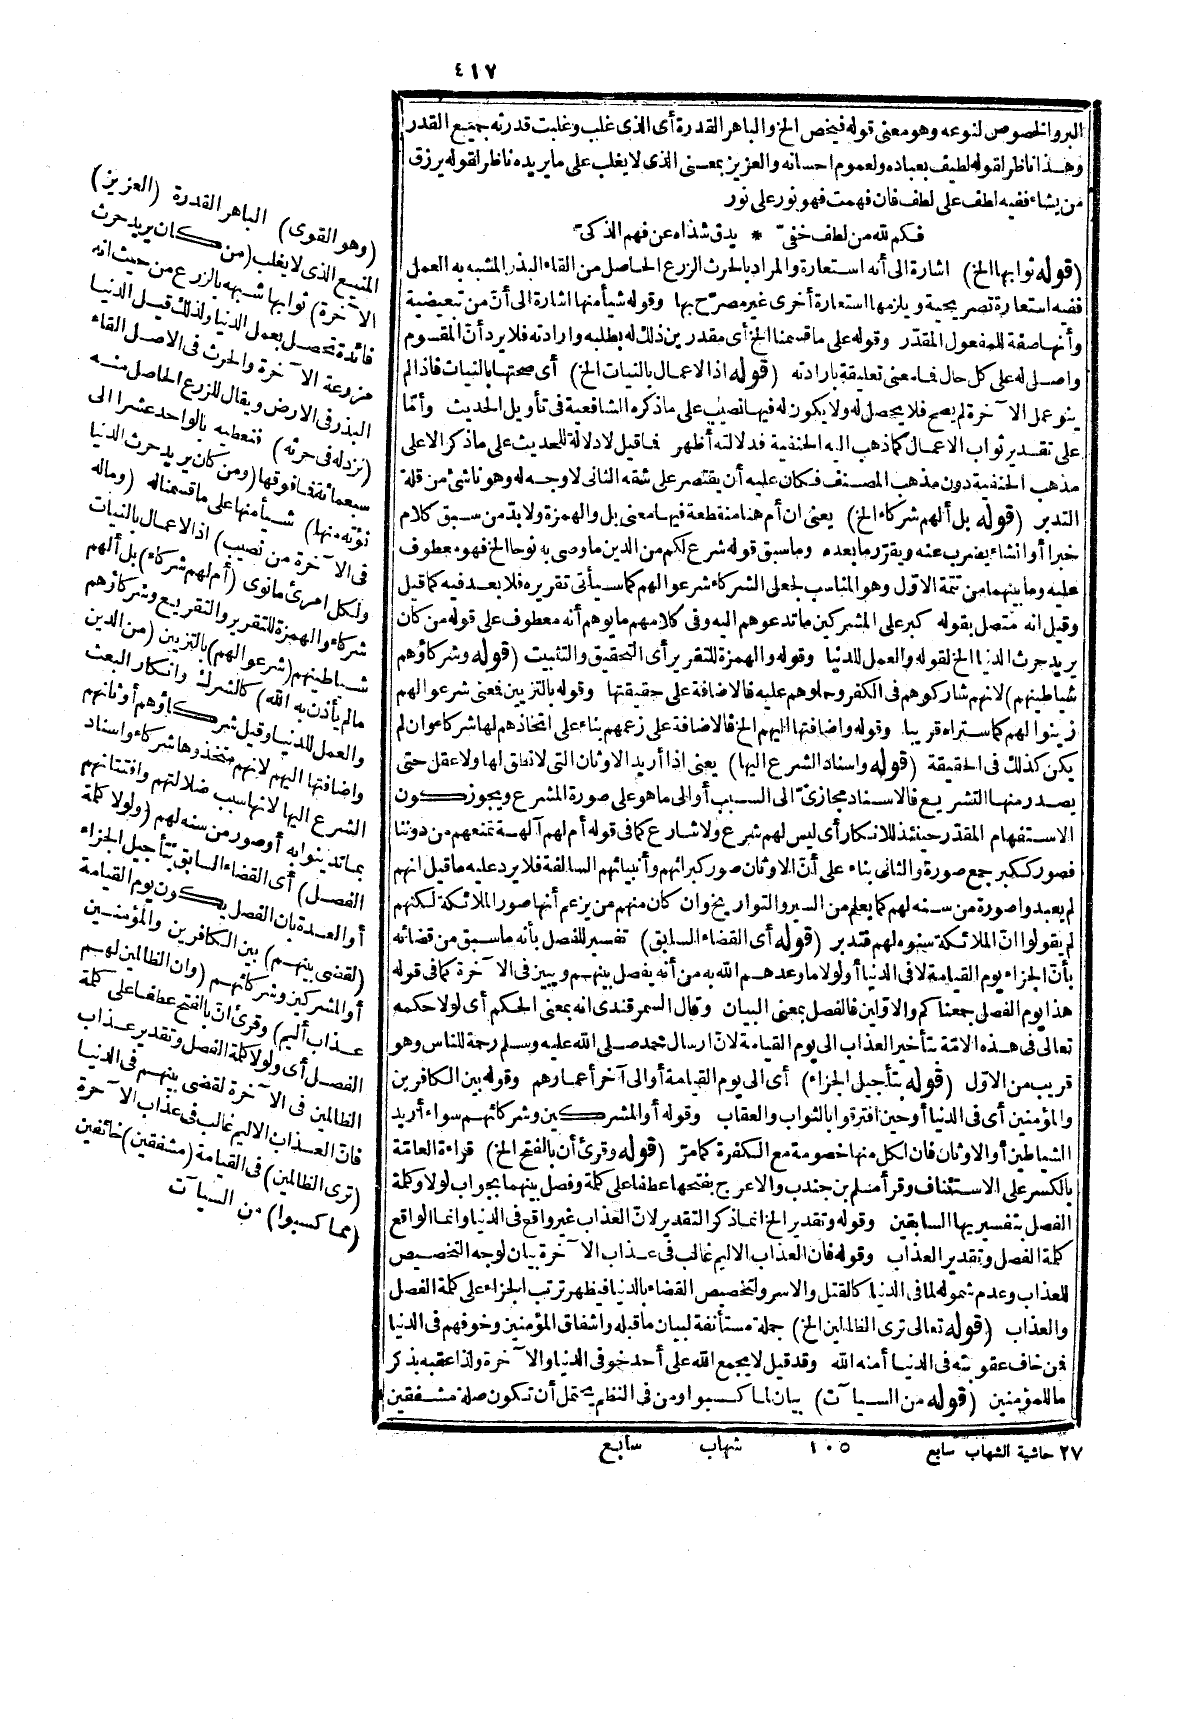 ٤١٧
البر والخصوص لنوعه وهو معنى قوله فيخص الخ والباهر القدرة أى الذى غلب وغلبت قدرته جميع القدر
وهذا ناظر لقوله لطيف بعباده ولعموم احسانه والعزيز بمعنى الذى لا يغلب على ما يريده ناظر لقوله يرزق
من يشاء ففيه لطف على لطف فان فهمت فهو نور على نور
فكم لله من لطف خفىّ * يدق شذاه عن فهم الذكىّ
(قوله ثوابها الخ) اشارة الى أنه استعارة والمراد بالحرث الزرع الحاصل من القاء البذر المشبه به العمل
ففيه استعارة تصريحية ويلزمها استعارة أخرى غير مصرّح بها وقوله شيأ منها اشارة الى أنّ من تبعيضية
وأنها صفة للمفعول المقدّر وقوله على ما قسمنا الخ أى مقدرين ذلك له بطلبه وارادته فلا يرد أنّ المقسوم
واصل له على كل حال فما معنى تعليقه بارادته (قوله اذ الاعمال بالنيات الخ) أى صحتها بالنيات فاذا لم
ينو عمل الآخرة لم يصح فلا يحصل له ولا يكون له فيها نصيب على ما ذكره الشافعية فى تأويل الحديث وأمّا
على تقدير ثواب الاعمال كما ذهب اليه الحنفية فدلالته أظهر فما قيل لا دلالة للحديث على ما ذكر الا على
مذهب الحنفية دون مذهب المصنف فكان عليه أن يقتصر على شقه الثانى لا وجه له وهو ناشئ من قلة
التدبر (قوله بل ألهم شركاء الخ) يعنى ان أم هنا منقطعة فيها معنى بل والهمزة ولا بدّ من سبق كلام
خبرا أو انشاء يضرب عنه ويقرّر ما بعده وما سبق قوله شرع لكم من الدين ما وصى به نوحا الخ فهو معطوف
عليه وما بينهما من تتمة الاوّل وهو المناسب لجعل الشركاء شرعوا لهم كما سيأتى تقريره فلا بعد فيه كما قيل
وقيل انه متصل بقوله كبر على المشركين ما تدعوهم اليه وفى كلامهم ما يوهم أنه معطوف على قوله من كان
يريد حرث الدنيا الخ لقوله والعمل للدنيا وقوله والهمزة للتقرير أى التحقيق والتثبيت (قوله وشركاؤهم
شياطينهم) لانهم شاركوهم فى الكفر وحملوهم عليه فالاضافة على حقيقتها وقوله بالتزيين فمعنى شرعوا لهم
زينوا لهم كما ستراه قريبا وقوله واضافتها اليهم الخ فالاضافة على زعمهم بناء على اتخاذهم لها شركاء وان لم
يكن كذلك فى الحقيقة (قوله واسناد الشرع اليها) يعنى اذا أريد الاوثان التى لا نطق لها ولا عقل حتى
يصدر منها التشريع فالاسناد مجازىّ الى السبب أو الى ما هو على صورة المشرع ويجوز كون
الاستفهام المقدّر حينئذ للانكار أى ليس لهم شرع ولا شارع كما فى قوله أم لهم آلهة تمنعهم من دوننا
فصور ككبر جمع صورة والثانى بناء على أنّ الاوثان صور كبرائهم وأنبيائهم السالفة فلا يرد عليه ما قيل انهم
لم يعبدوا صورة من سنه لهم كما يعلم من السير والتواريخ وان كان منهم من يزعم أنها صور الملائكة لكنهم
لم يقولوا انّ الملائكة سنوه لهم فتدبر (قوله أى القضاء السابق) تفسير للفصل بأنه ما سبق من قضائه
بأنّ الجزاء يوم القيامة لا فى الدنيا أو لولا ما وعدهم الله به من أنه يفصل بينهم ويبين فى الآخرة كما فى قوله
هذا يوم الفصل جمعناكم والاوّلين فالفصل بمعنى البيان وقال السمرقندى انه بمعنى الحكم أى لولا حكمه
تعالى فى هذه الامّة بتأخير العذاب الى يوم القيامة لانّ ارسال محمد صلى الله عليه وسلم رحمة للناس وهو
قريب من الاوّل (قوله بتأجيل الجزاء) أى الى يوم القيامة أو الى آخر أعمارهم وقوله بين الكافرين
والمؤمنين أى فى الدنيا أو حين افترقوا بالثواب والعقاب وقوله أو المشركين وشركائهم سواء أريد
الشياطين أو الاوثان فان لكل منها خصومة مع الكفرة كما مرّ (قوله وقرئ أن بالفتح الخ) قراءة العامّة
بالكسر على الاستئناف وقرأ مسلم بن جندب والاعرج بفتحها عطفا على كلة وفصل بينهما بجواب لولا وكلة
الفصل بتفسيريها السابقين وقوله وتقدير الخ انما ذكر التقدير لانّ العذاب غير واقع فى الدنيا وانما الواقع
كلة الفصل وتقدير العذاب وقوله فان العذاب الاليم غالب فى عذاب الآخرة بيان لوجه التخصيص
للعذاب وعدم شموله لما فى الدنيا كالقتل والاسر ولتخصيص القضاء بالدنيا فيظهر ترتب الجزاء على كلة الفصل
والعذاب (قوله تعالى ترى الظالمين الخ) جملة مستأنفة لبيان ما قبله واشفاق المؤمنين وخوفهم فى الدنيا
فمن خاف عقوبته فى الدنيا أمنه الله وقد قيل لا يجمع الله على أحد خوفى الدنيا والآخرة ولذا عقبه بذكر
ما للمؤمنين (قوله من السيآت) بيان لما كسبوا ومن فى النظم يحتمل أن تكون صلة مشفقين
(وهو القوى) الباهر القدرة (العزيز)
المنيع الذى لا يغلب (من كان يريد حرث
الآخرة) ثوابها شبهه بالزرع من حيث انه
فائدة تحصل بعمل الدنيا ولذلك قيل الدنيا
مزرعة الآخرة والحرث فى الاصل القاء
البذر فى الارض ويقال للزرع الحاصل منه
(نزد له فى حرثه) فنعطيه بالواحد عشرا الى
سبعمائة فما فوقها (ومن كان يريد حرث الدنيا
نؤته منها) شيأ منها على ما قسمنا له (وما له
فى الآخرة من نصيب) اذ الاعمال بالنيات
ولكل امرئ ما نوى (أم لهم شركاء) بل ألهم
شركاء والهمزة للتقرير والتقريع وشركاؤهم
شياطينهم (شرعوا لهم) بالتزيين (من الدين
ما لم يأذن به الله) كالشرك وانكار البعث
والعمل للدنيا وقيل شركاؤهم أوثانهم
واضافتها اليهم لانهم متخذوها شركاء واسناد
الشرع اليها لانها سبب ضلالتهم وافتتانهم
بما تدينوا به أو صور من سنه لهم (ولولا كلة
الفصل) أى القضاء السابق بتأجيل الجزاء
أو العدة بان الفصل يكون يوم القيامة
(لقضى بينهم) بين الكافرين والمؤمنين
أو المشركين وشركائهم (وان الظالمين لهم
عذاب أليم) وقرئ انّ بالفتح عطفا على كلة
الفصل أى ولولا كلة الفصل وتقدير عذاب
الظالمين فى الآخرة لقضى بينهم فى الدنيا
فان العذاب الاليم غالب فى عذاب الآخرة
(ترى الظالمين) فى القيامة (مشفقين) خائفين
(مما كسبوا) من السيآت
٢٧ حاشية الشهاب سابع ١٠٥ شهاب سابع